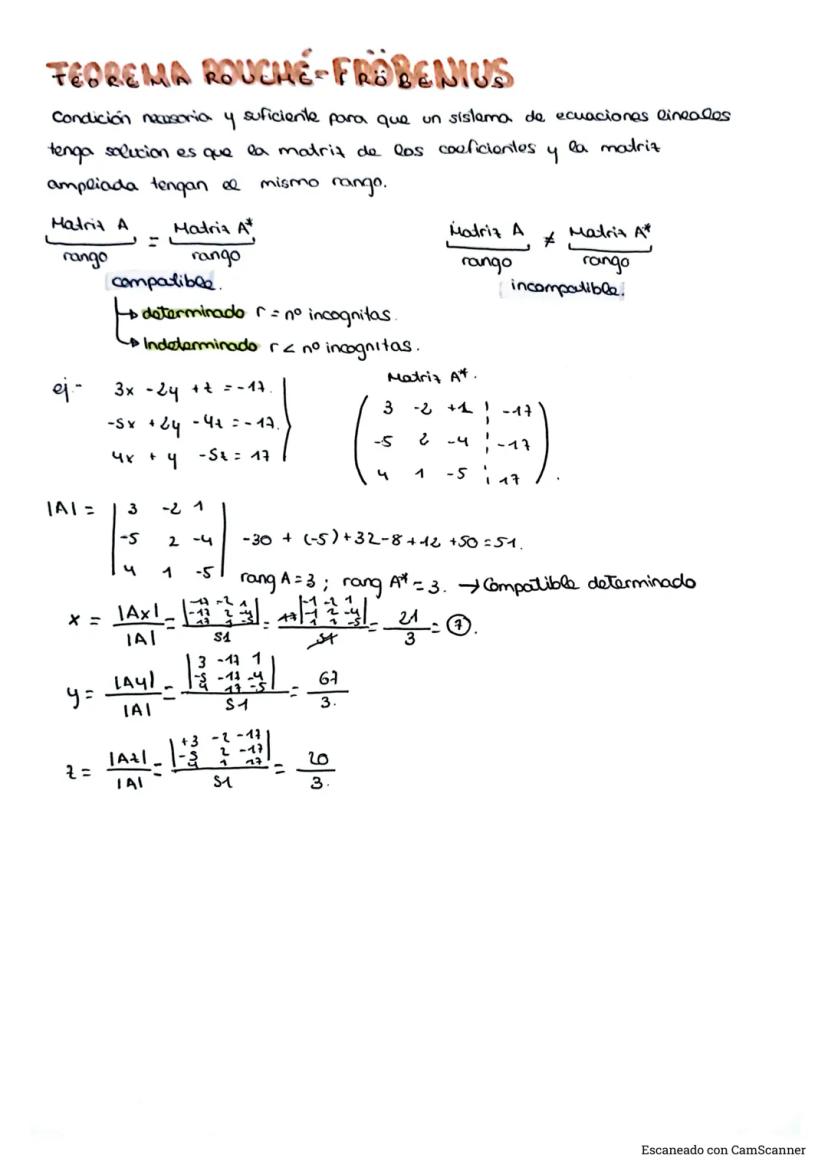 TEOREMA ROUCHÉ-FRÖBENIUS
Condición necesaria y suficiente para que un sistema de ecuaciones lineales
tenga solucion es que la matriz de los coeficientes y la matriz
ampliada tengan el mismo rango.
Matriz A = Matriz A* Matriz A ≠ Matriz A*
rango rango rango rango
compatible. incompatible.
↳ determinado r = nº incognitas.
↳ Indeterminado r < nº incognitas.
Matriz A*.
ej.- 3x - 2y + z = -17. 3 -2 +1 | -17
-5x + 2y - 4z = -17. -5 2 -4 | -17
4x + y - 5z = 17 4 1 -5 | 17
|A| = 3 -2 1
-5 2 -4 -30 + (-5) + 32 - 8 + 12 + 50 = 51.
4 1 -5 rang A = 3 ; rang A* = 3. → Compatible determinado
x = |Ax| / |A| = |-17 -2 1 / -17 2 -4 / 17 1 -5| / 51 = 17 |-1 -2 1 / -1 2 -4 / 1 1 -5| / 51 = 21 / 3 = 7.
y = |Ay| / |A| = |3 -17 1 / -5 -17 -4 / 4 17 -5| / 51 = 67 / 3.
z = |Az| / |A| = |+3 -2 -17 / -5 2 -17 / 4 1 17| / 51 = 20 / 3.
Escaneado con CamScanner